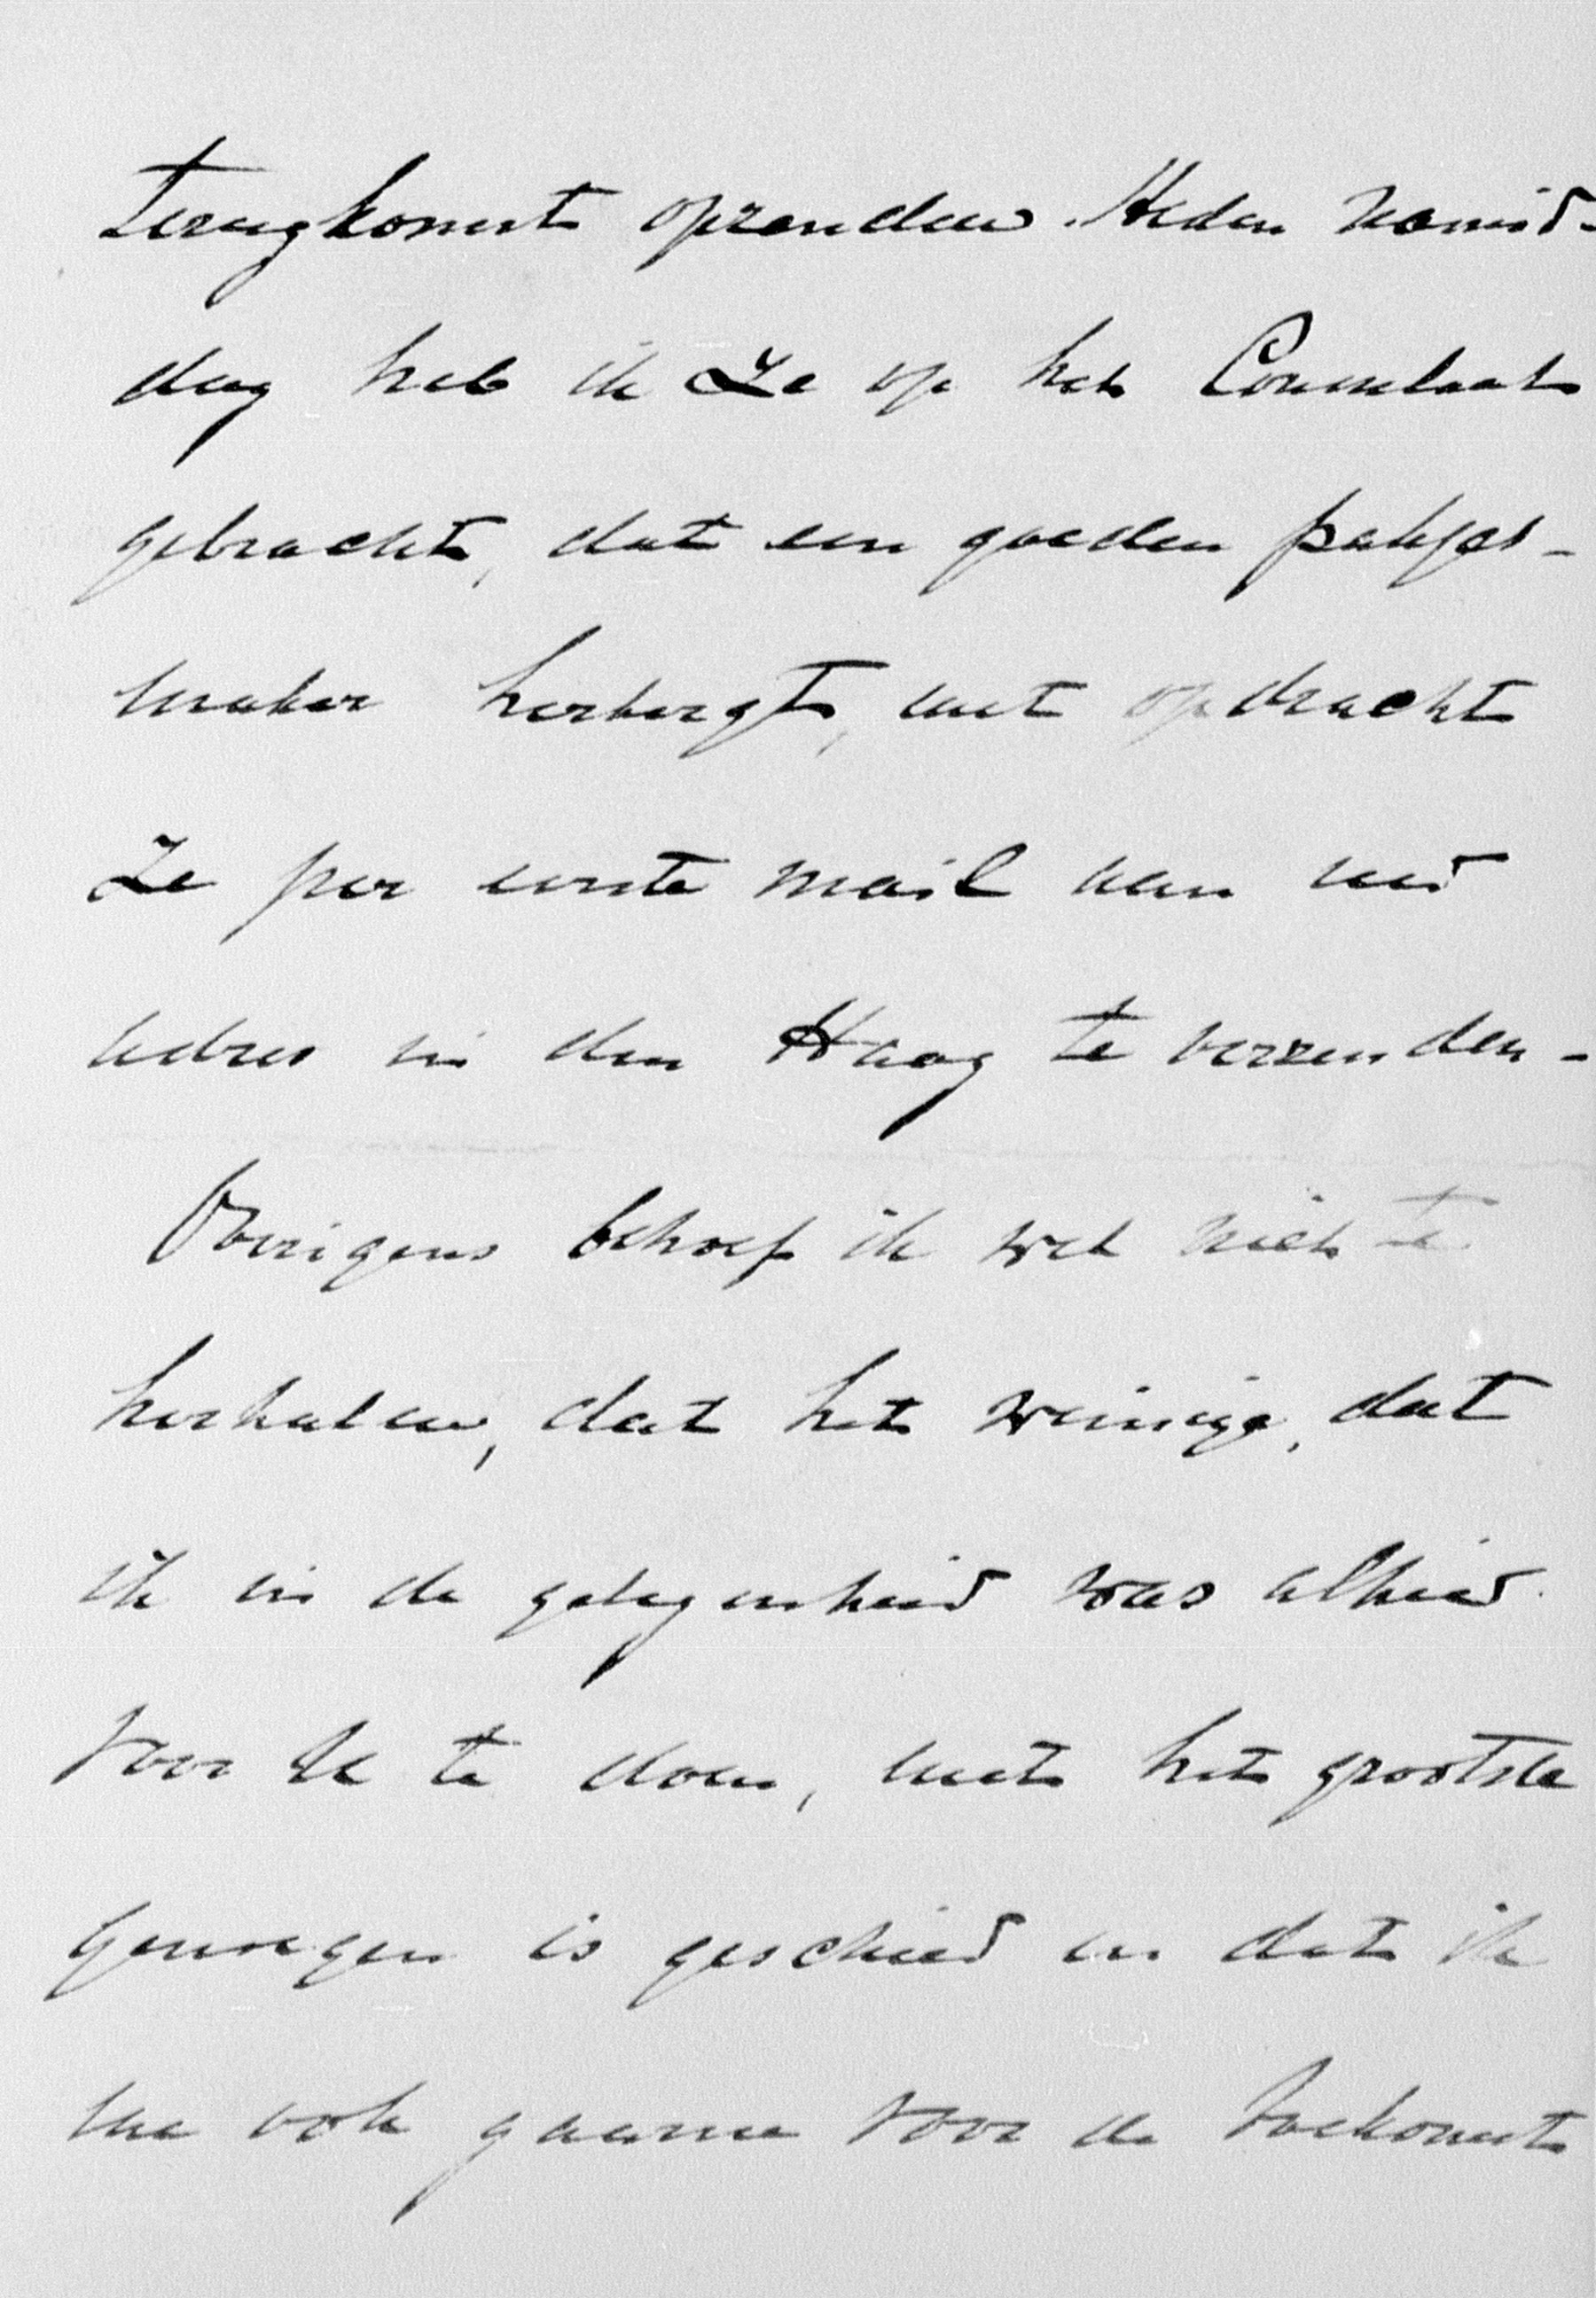 terugkomst opzenden. Heden namid-
dag heb ik ze op het Consulaat
gebracht, dat een goeden pakjes-
maker herbergt, met opdracht
ze per eerste mail aan uw
adres in den Haag te verzenden -
Overigens behoef ik wel niet te
herhalen, dat het weinige, dat
ik in de gelegenheid was alhier
voor U te doen, met het grootste
genoegen is geschied en dat ik
me ook gaarne voor de toekomst